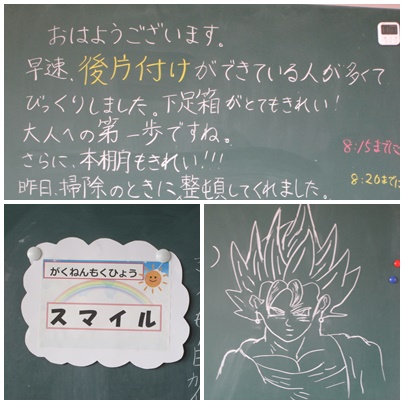 おはようございます。
早速、後片付けができている人が多くて
びっくりしました。下足箱がとてもきれい!
大人への第一歩ですね。
さらに、本棚もきれい!!!
昨日、掃除のときに、整頓してくれました。
8:15までに
8:20までに
がくねんもくひょう
スマイル